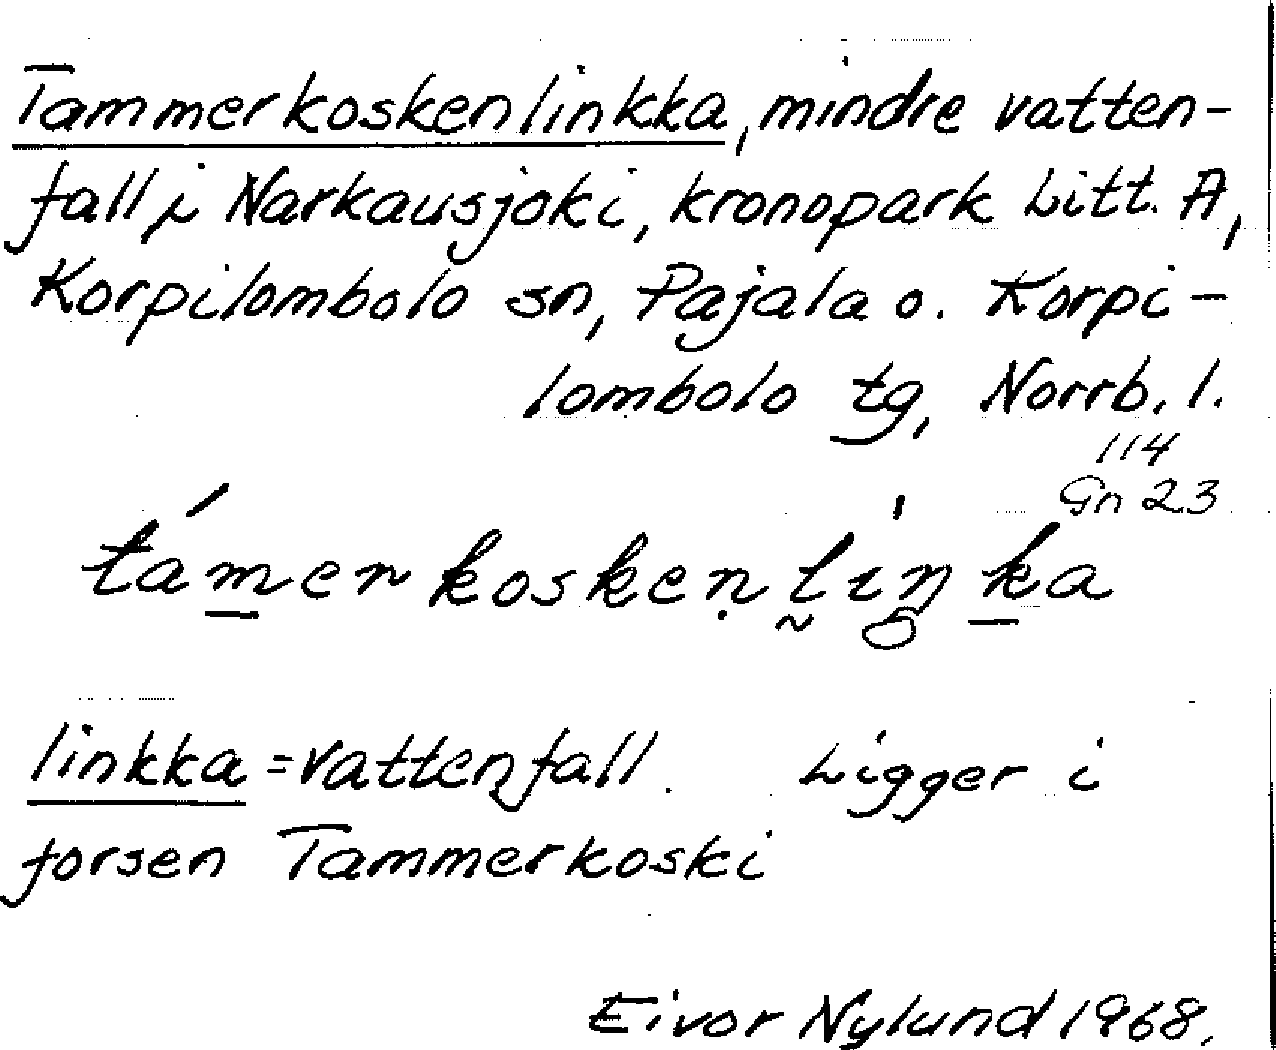 Tammerkoskenlinkka, mindre vatten-
fall i Narkausjoki, kronopark Litt. A,
Korpilombolo sn, Pajala o. Korpi-
lombolo tg, Norrb. l.
114
Gn 23
támerkosken̩lıŋka
linkka = vattenfall. Ligger i
forsen Tammerkoski
Eivor Nylund 1968.